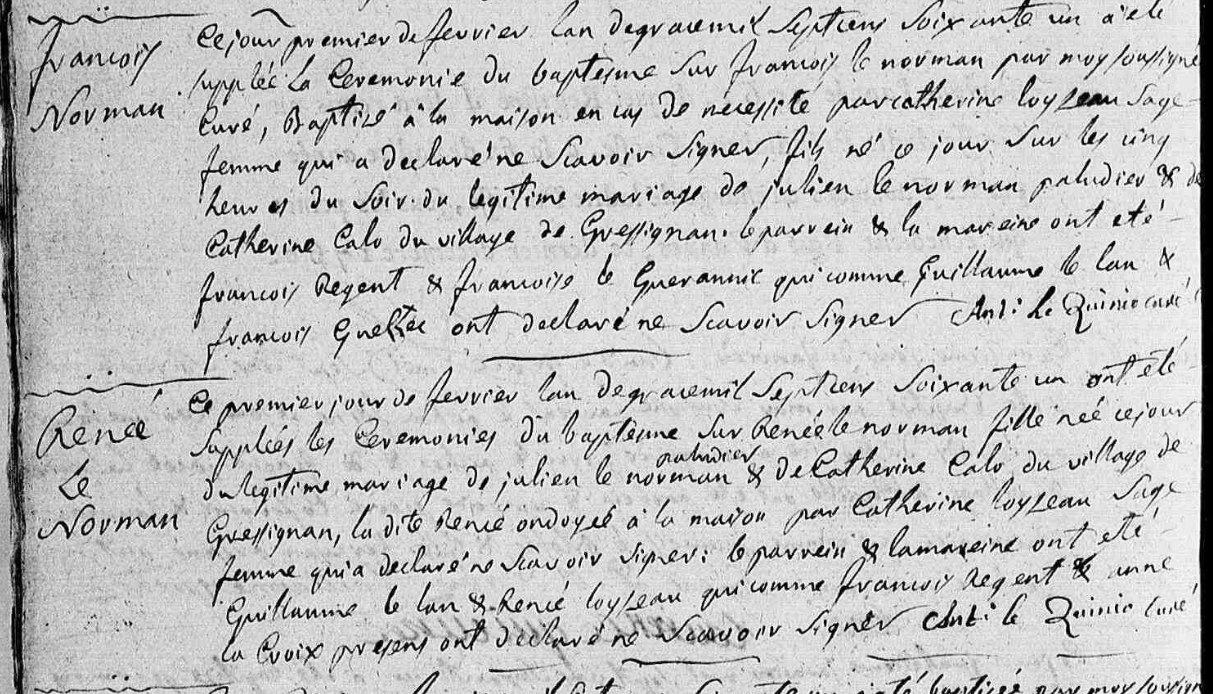 francois
Norman
Ce jour premier de fevrier lan de grace mil Septcens Soixante un a été
supplée la Ceremonie du baptesme Sur francois le norman par moy soussigné
Curé, Baptisé à la maison en cas de necessité par catherine loyzeau Sage-
femme qui a declaré ne Scavoir Signer, fils né ce jour Sur les cinq
heures du Soir du legitime mariage de julien le norman paludier & de
Catherine Calo du village de Gressignan. le parrein & la mareine ont eté
francois Regent & francoise le Guerannic qui comme Guillaume le lan &
francois ont declaré ne Scavoir Signer Ant: le Quinio curé
Renée
Le
Norman
Ce premier jour de fevrier lan de grace mil Septcens Soixante un ont eté
Suppleés les Ceremonies du baptesme Sur Renée le norman fille neé ce jour
du legitime mariage de julien le norman paludier & de Catherine Calo du village de
Gressignan, la dite Reneé ondoyeé à la maison par Catherine loyzeau Sage
femme qui a declaré ne Scavoir signer: le parrein & la mareine ont eté
Guillaume le lan & Reneé loyzeau qui comme francois Regent & anne
la Croix presens ont declaré ne Scavoir Signer Ant: le Quinio Curé
baptisée par moy soussigné